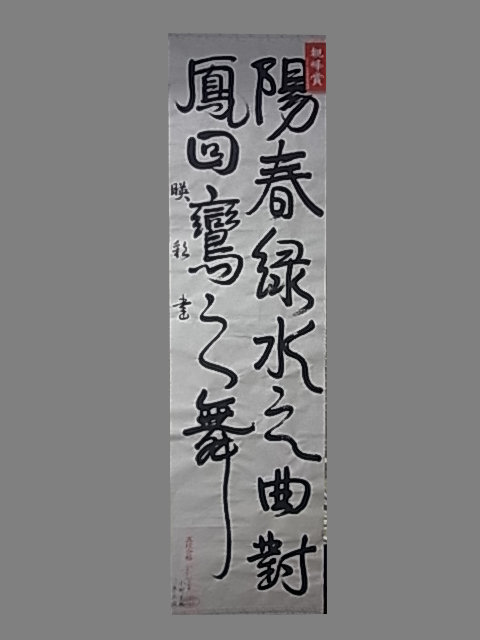 陽春緑水之曲對
鳳回鸞之舞
暎彩書
親峰賞